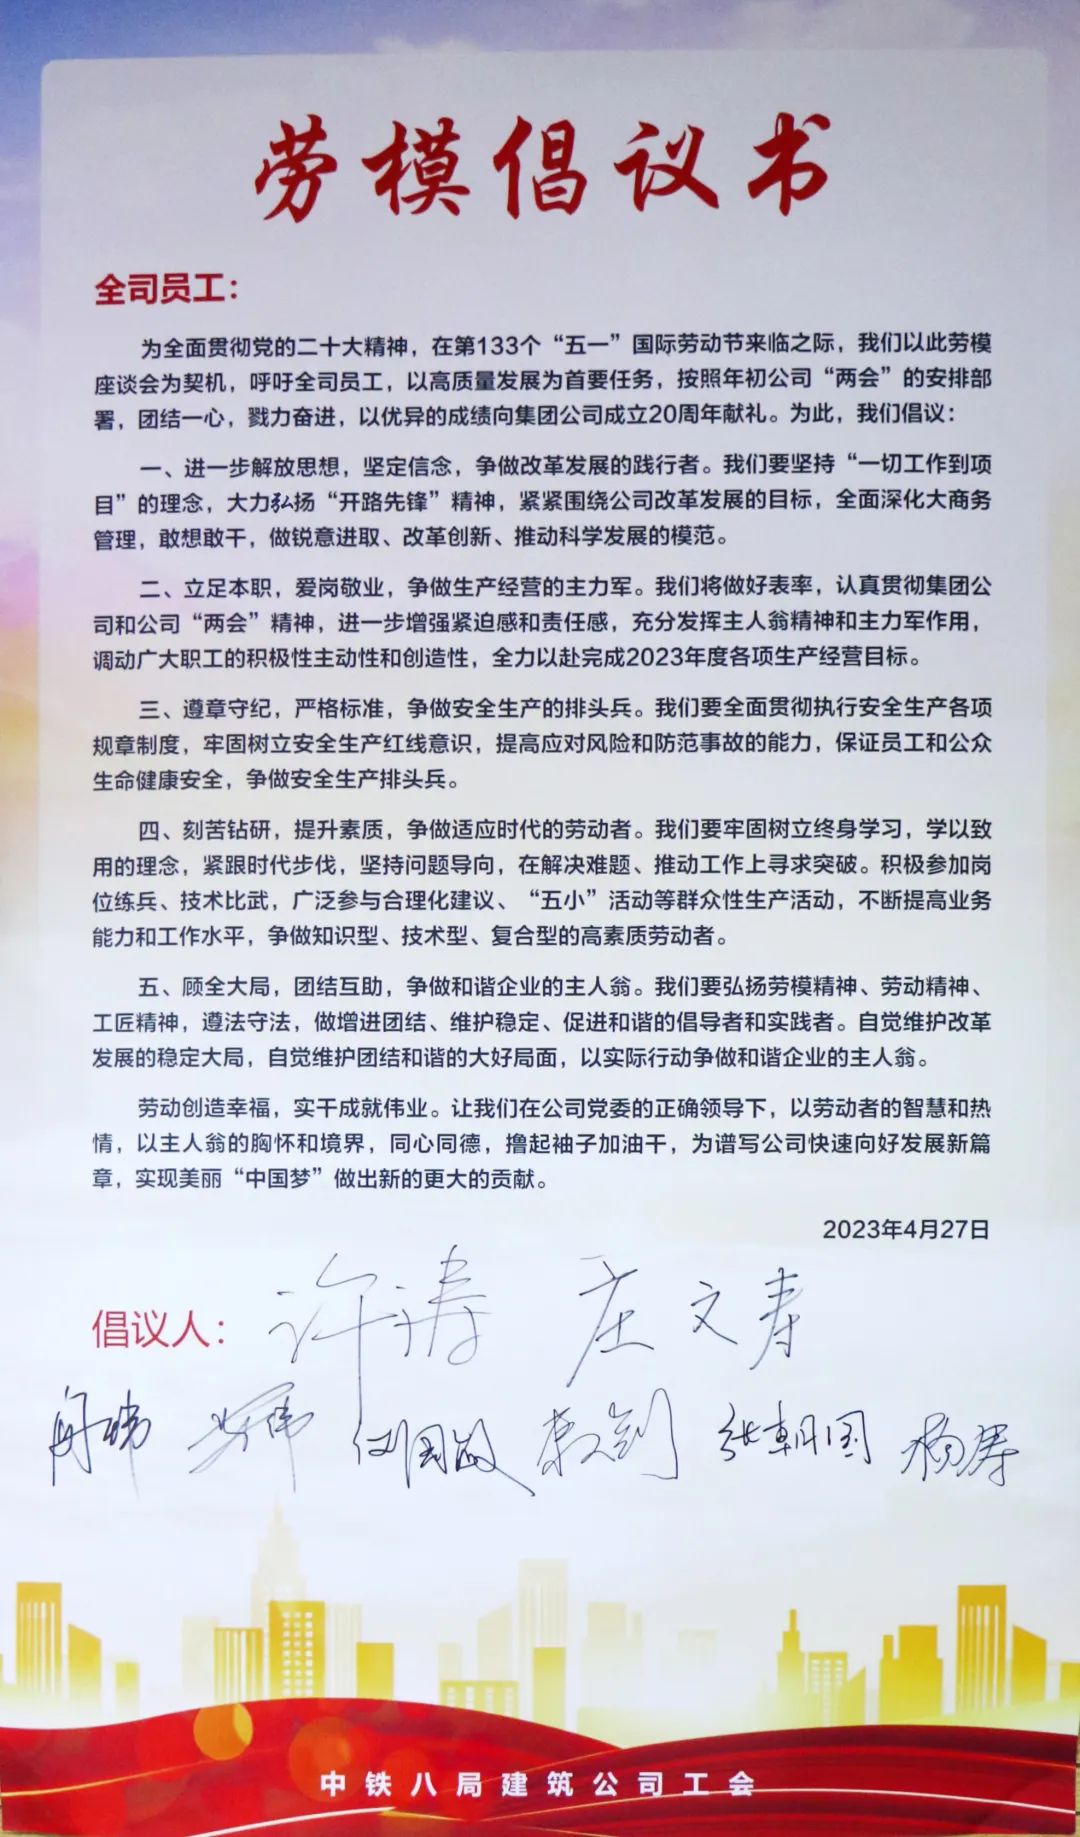 劳模倡议书
全司员工：
为全面贯彻党的二十大精神，在第133个“五一”国际劳动节来临之际，我们以此劳模
座谈会为契机，呼吁全司员工，以高质量发展为首要任务，按照年初公司“两会”的安排部
署，团结一心，戮力奋进，以优异的成绩向集团公司成立20周年献礼。为此，我们倡议：
一、进一步解放思想，坚定信念，争做改革发展的践行者。我们要坚持“一切工作到项
目”的理念，大力弘扬“开路先锋”精神，紧紧围绕公司改革发展的目标，全面深化大商务
管理，敢想敢干，做锐意进取、改革创新、推动科学发展的模范。
二、立足本职，爱岗敬业，争做生产经营的主力军。我们将做好表率，认真贯彻集团公
司和公司“两会”精神，进一步增强紧迫感和责任感，充分发挥主人翁精神和主力军作用，
调动广大职工的积极性主动性和创造性，全力以赴完成2023年度各项生产经营目标。
三、遵章守纪，严格标准，争做安全生产的排头兵。我们要全面贯彻执行安全生产各项
规章制度，牢固树立安全生产红线意识，提高应对风险和防范事故的能力，保证员工和公众
生命健康安全，争做安全生产排头兵。
四、刻苦钻研，提升素质，争做适应时代的劳动者。我们要牢固树立终身学习，学以致
用的理念，紧跟时代步伐，坚持问题导向，在解决难题、推动工作上寻求突破。积极参加岗
位练兵、技术比武，广泛参与合理化建议、“五小”活动等群众性生产活动，不断提高业务
能力和工作水平，争做知识型、技术型、复合型的高素质劳动者。
五、顾全大局，团结互助，争做和谐企业的主人翁。我们要弘扬劳模精神、劳动精神、
工匠精神，遵法守法，做增进团结、维护稳定、促进和谐的倡导者和实践者。自觉维护改革
发展的稳定大局，自觉维护团结和谐的大好局面，以实际行动争做和谐企业的主人翁。
劳动创造幸福，实干成就伟业。让我们在公司党委的正确领导下，以劳动者的智慧和热
情，以主人翁的胸怀和境界，同心同德，撸起袖子加油干，为谱写公司快速向好发展新篇
章，实现美丽“中国梦”做出新的更大的贡献。
2023年4月27日
倡议人： 许涛 庄文寿
张朝国 杨涛
中铁八局建筑公司工会